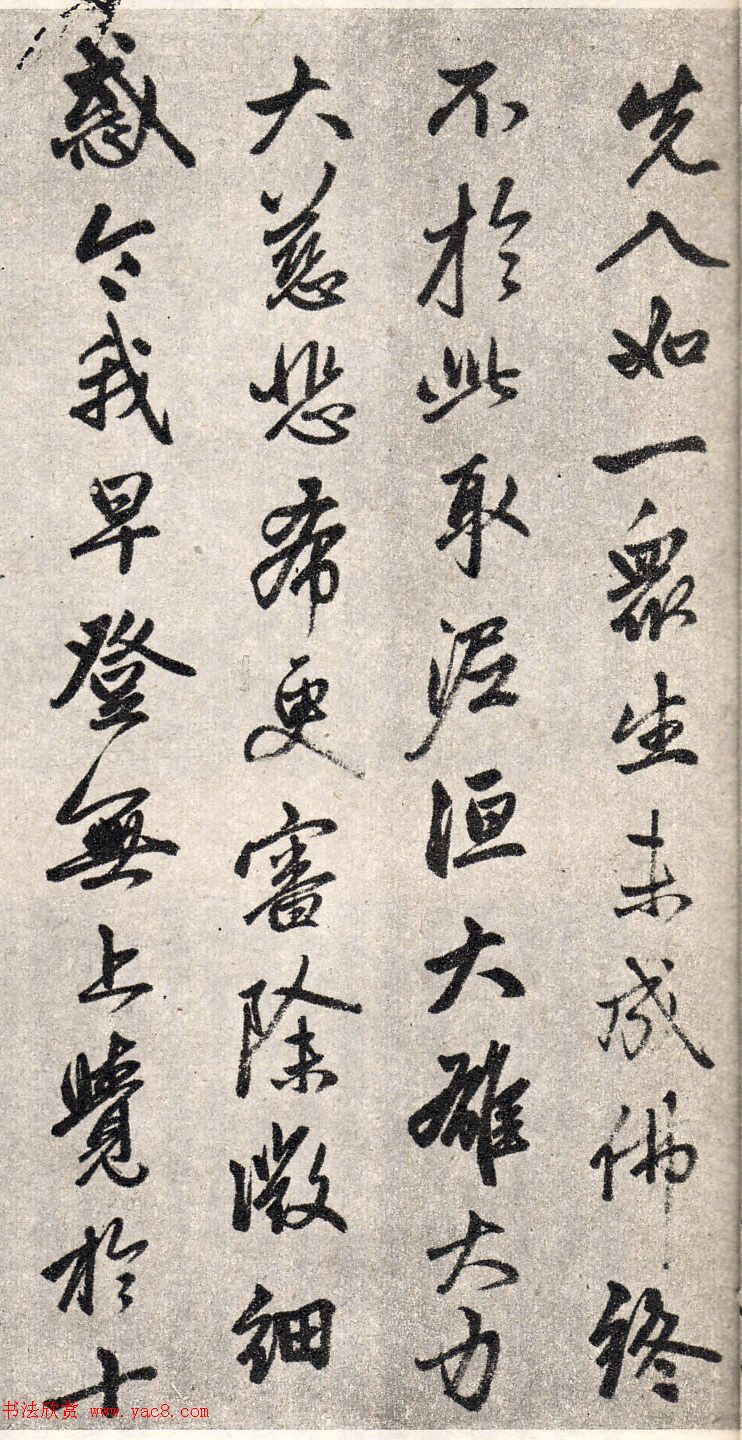 先入如一衆生未成佛終
不於此取泥洹大雄大力
大慈悲希更審除微細
惑令我早登無上覺於十
书法欣赏 www.yac8.com